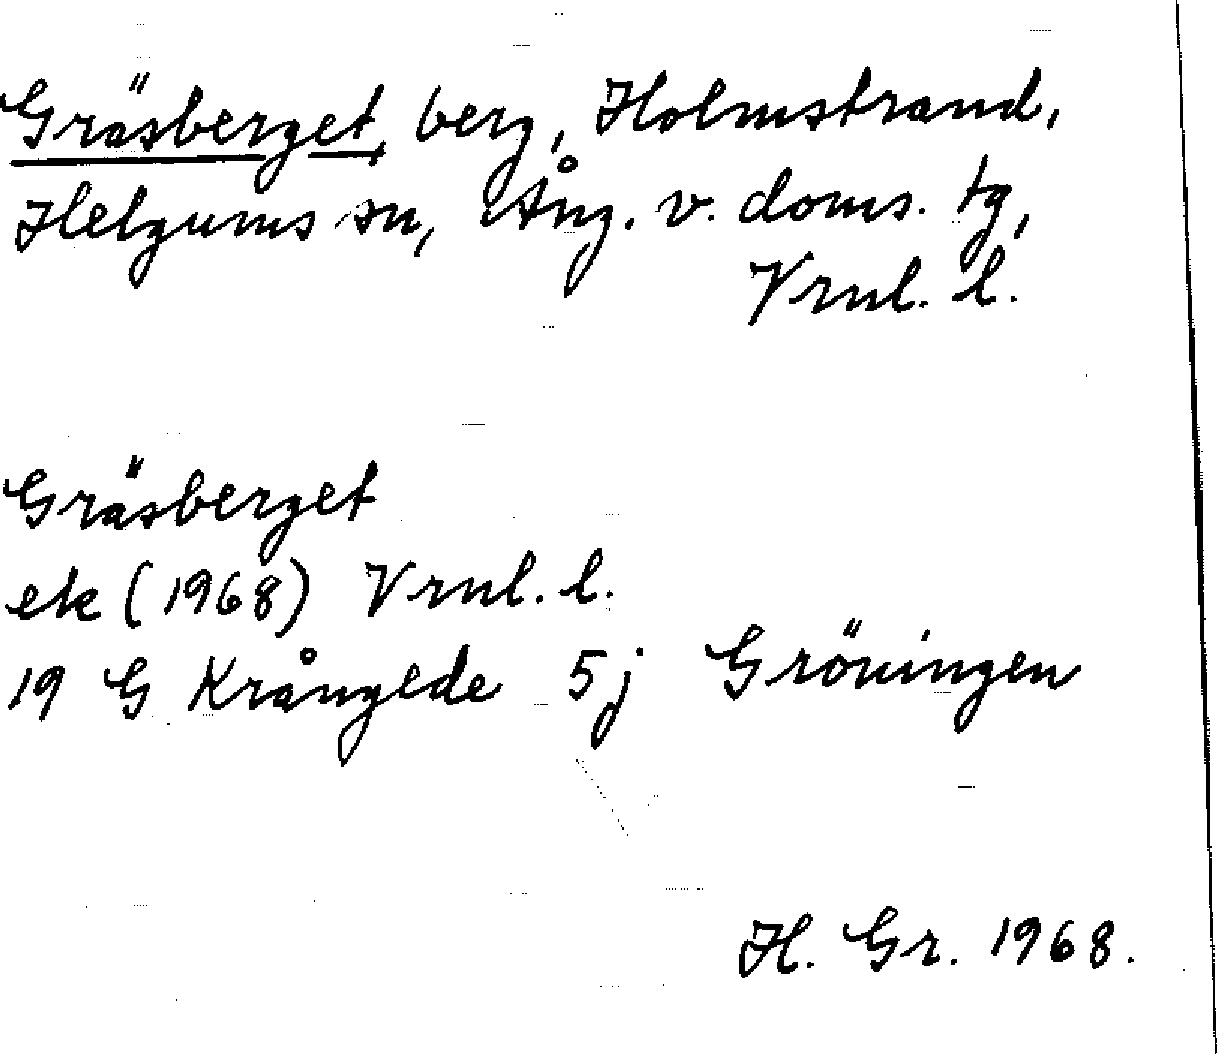 Gräsberget, berg, Holmstrand,
Helgums sn, Ång. v. doms. tg,
Vrnl. l.
Gräsberget
ek (1968) Vrnl. l.
19 G Krångede 5j Gröningen
H. Gr. 1968.